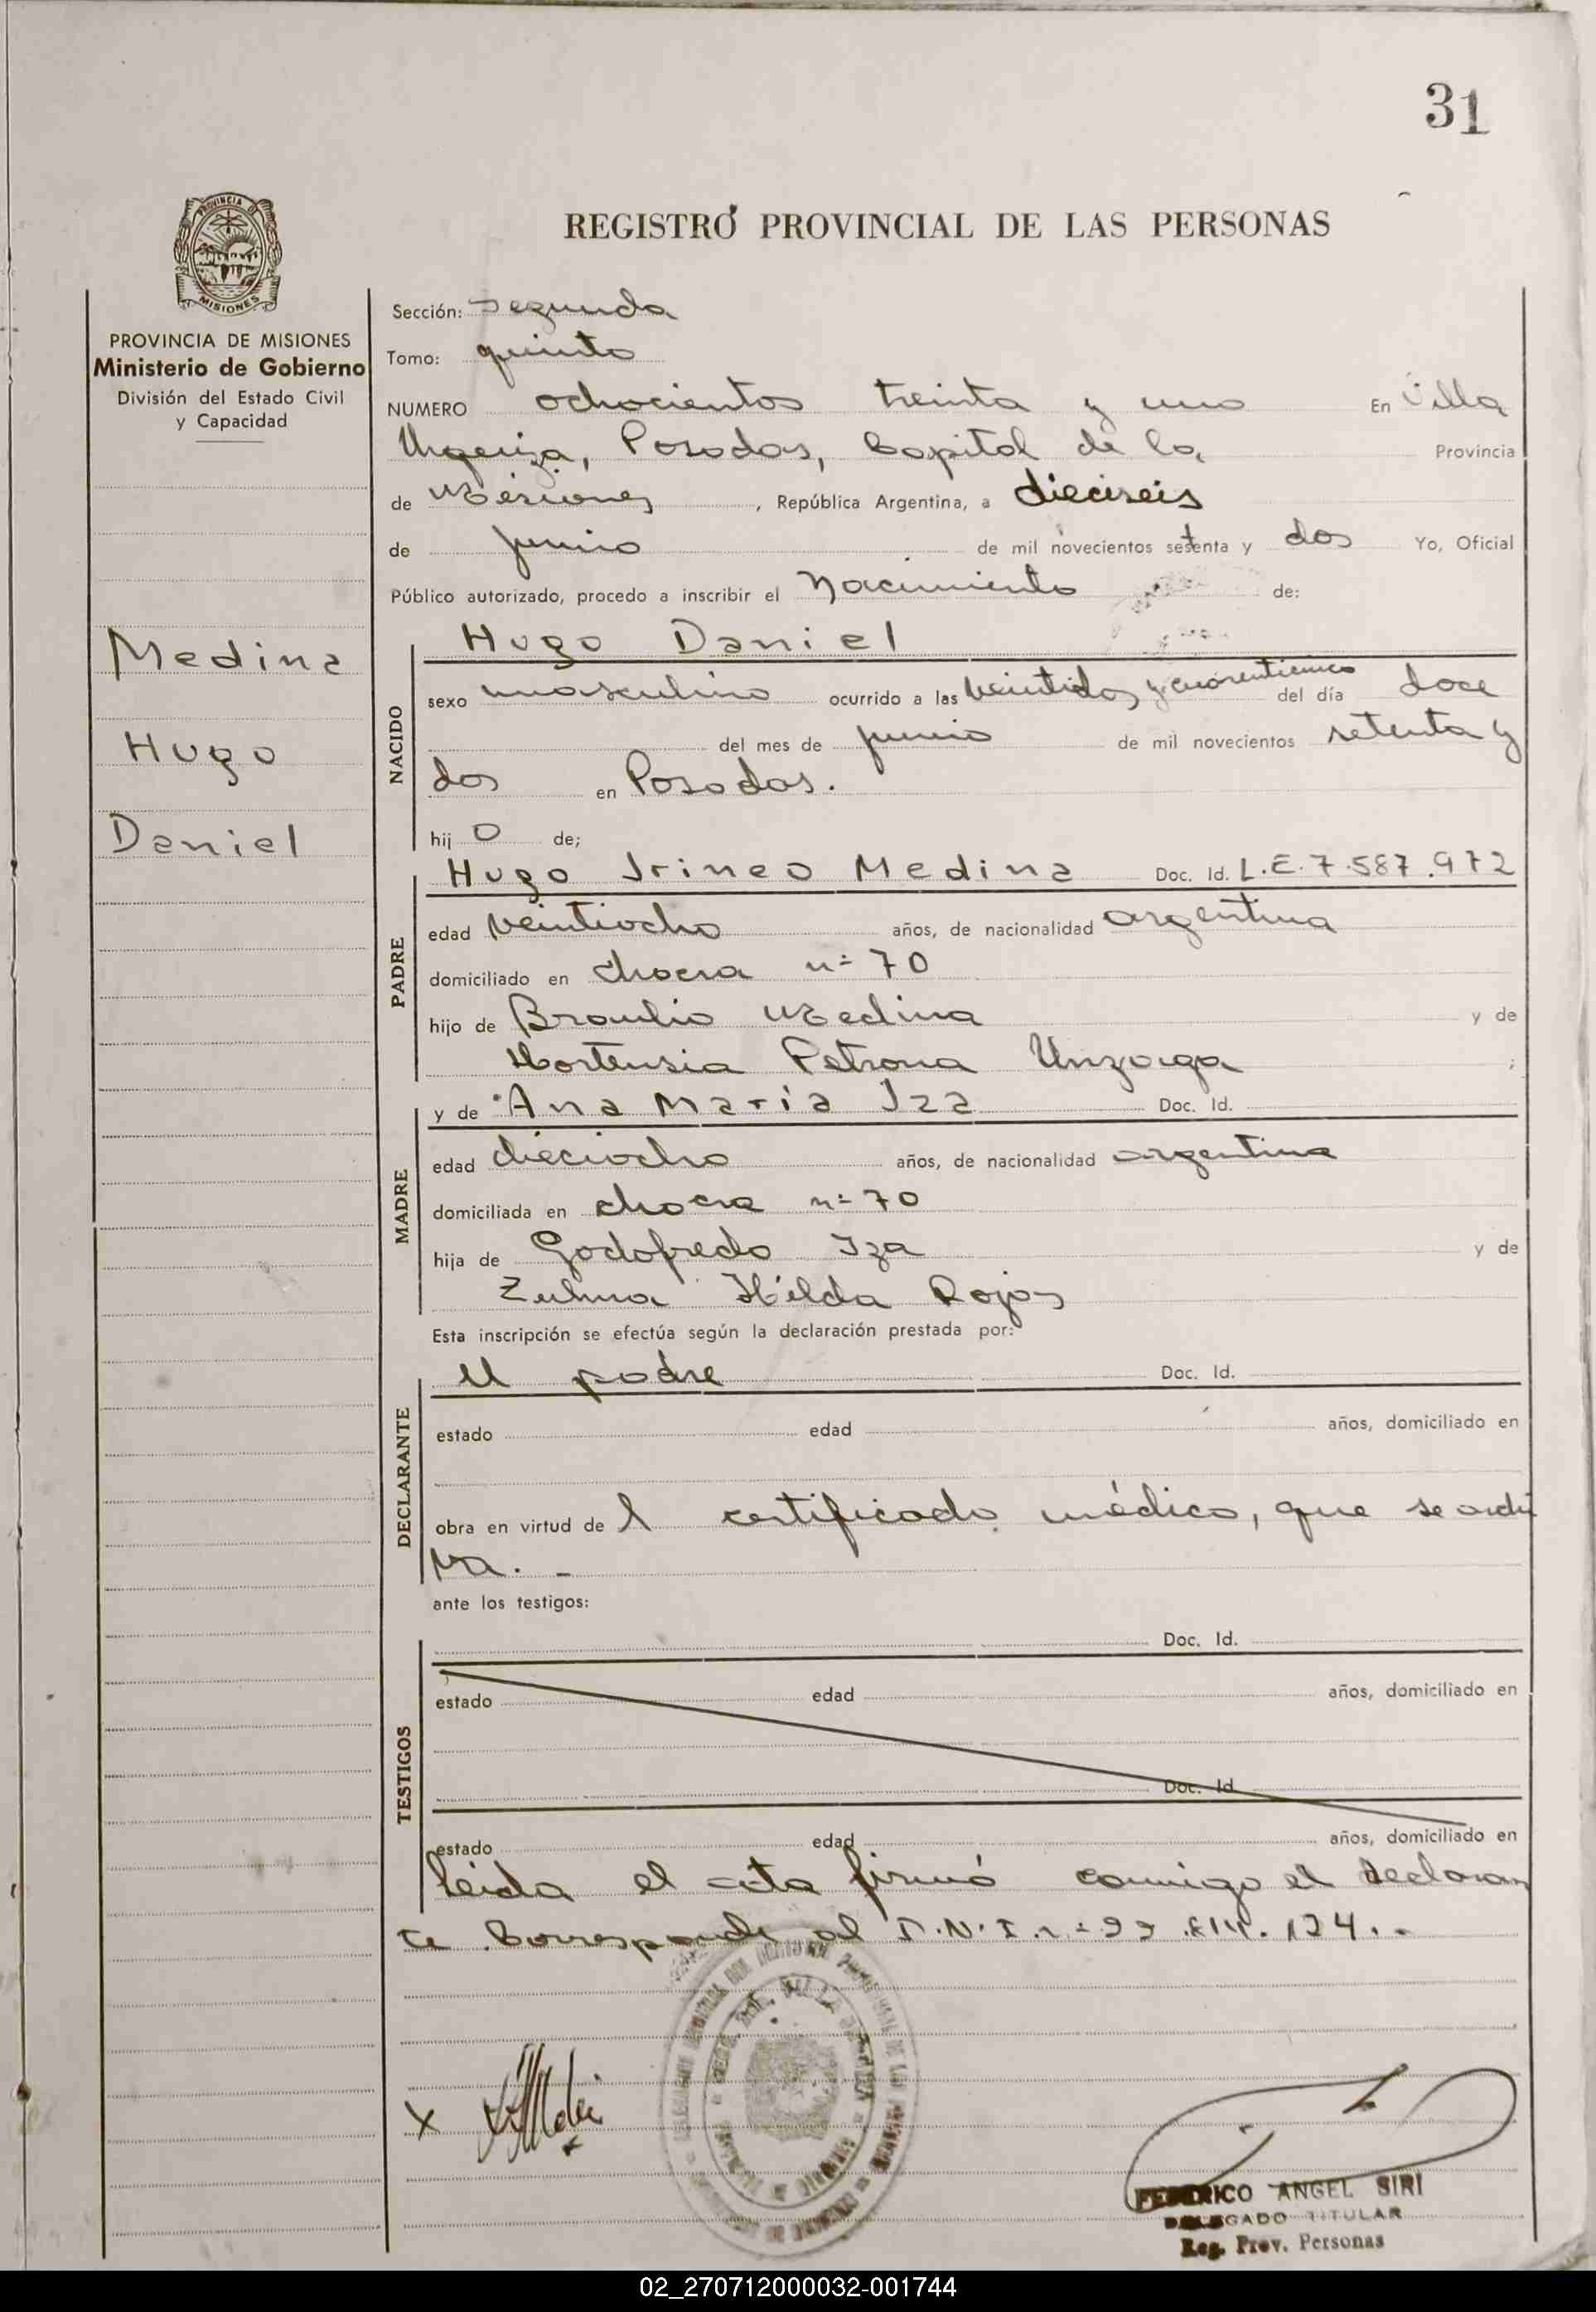 31
REGISTRO PROVINCIAL DE LAS PERSONAS
PROVINCIA DE
MISIONES
PROVINCIA DE MISIONES
Ministerio de Gobierno
División del Estado Civil
y Capacidad
Medina
Hugo
Daniel
Sección: Segunda
Tomo: quinto
NUMERO ochocientos treinta y uno En Villa
Urquiza, Posadas, Capital de la Provincia
de Misiones, República Argentina, a dieciseis
de junio de mil novecientos setenta y dos Yo, Oficial
Público autorizado, procedo a inscribir el Nacimiento de:
NACIDO
Hugo Daniel
sexo masculino ocurrido a las veintidos y cuarenticinco del día doce
del mes de junio de mil novecientos setenta y
dos en Posadas.
hijo de;
PADRE
Hugo Irineo Medina Doc. Id. L.E. 7.587.972
edad veintiocho años, de nacionalidad argentina
domiciliado en chacra nº 70
hijo de Braulio Medina y de
Hortensia Petrona Unzaga ;
MADRE
y de Ana María Iza Doc. Id.
edad dieciocho años, de nacionalidad argentina
domiciliada en chacra nº 70
hija de Godofredo Iza y de
Zulma Hilda Rojas
Esta inscripción se efectúa según la declaración prestada por:
DECLARANTE
el padre Doc. Id.
estado edad años, domiciliado en
obra en virtud de l certificado médico, que se archi
va. -
ante los testigos:
TESTIGOS
Doc. Id.
estado edad años, domiciliado en
Doc. Id
estado edad años, domiciliado en
Leida el acta firmó conmigo el declaran
te Corresponde al D.N.I. nº .124.-
FEDERICO ANGEL SIRI
DELEGADO TITULAR
Reg. Prov. Personas
02_270712000032-001744